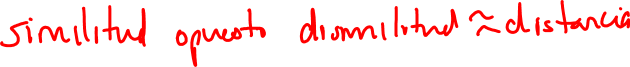 similitud opuesto disimilitud ≈ distancia